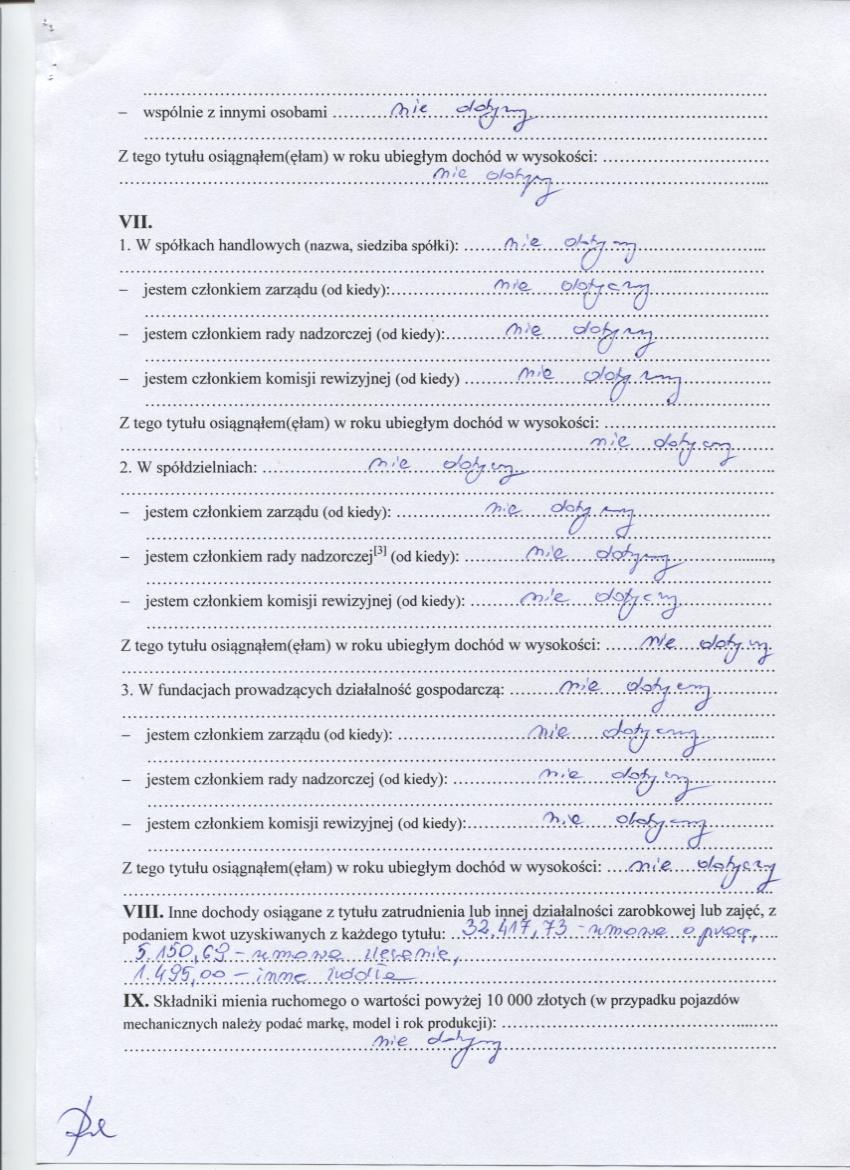 – wspólnie z innymi osobami nie dotyczy
Z tego tytułu osiągnąłem(ęłam) w roku ubiegłym dochód w wysokości:
nie dotyczy
VII.
1. W spółkach handlowych (nazwa, siedziba spółki): nie dotyczy
– jestem członkiem zarządu (od kiedy): nie dotyczy
– jestem członkiem rady nadzorczej (od kiedy): nie dotyczy
– jestem członkiem komisji rewizyjnej (od kiedy) nie dotyczy
Z tego tytułu osiągnąłem(ęłam) w roku ubiegłym dochód w wysokości:
nie dotyczy
2. W spółdzielniach: nie dotyczy
– jestem członkiem zarządu (od kiedy): nie dotyczy
– jestem członkiem rady nadzorczej[3] (od kiedy): nie dotyczy
– jestem członkiem komisji rewizyjnej (od kiedy): nie dotyczy
Z tego tytułu osiągnąłem(ęłam) w roku ubiegłym dochód w wysokości: nie dotyczy
3. W fundacjach prowadzących działalność gospodarczą: nie dotyczy
– jestem członkiem zarządu (od kiedy): nie dotyczy
– jestem członkiem rady nadzorczej (od kiedy): nie dotyczy
– jestem członkiem komisji rewizyjnej (od kiedy): nie dotyczy
Z tego tytułu osiągnąłem(ęłam) w roku ubiegłym dochód w wysokości: nie dotyczy
VIII. Inne dochody osiągane z tytułu zatrudnienia lub innej działalności zarobkowej lub zajęć, z
podaniem kwot uzyskiwanych z każdego tytułu: 32.417,73 - umowa o pracę,
5.150,69 - umowa zlecenie,
1.495,00 - inne źródła
IX. Składniki mienia ruchomego o wartości powyżej 10 000 złotych (w przypadku pojazdów
mechanicznych należy podać markę, model i rok produkcji):
nie dotyczy